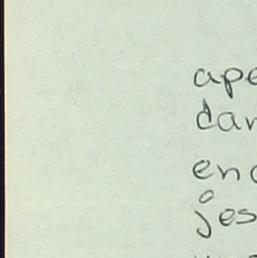 ape
dar
end
jes